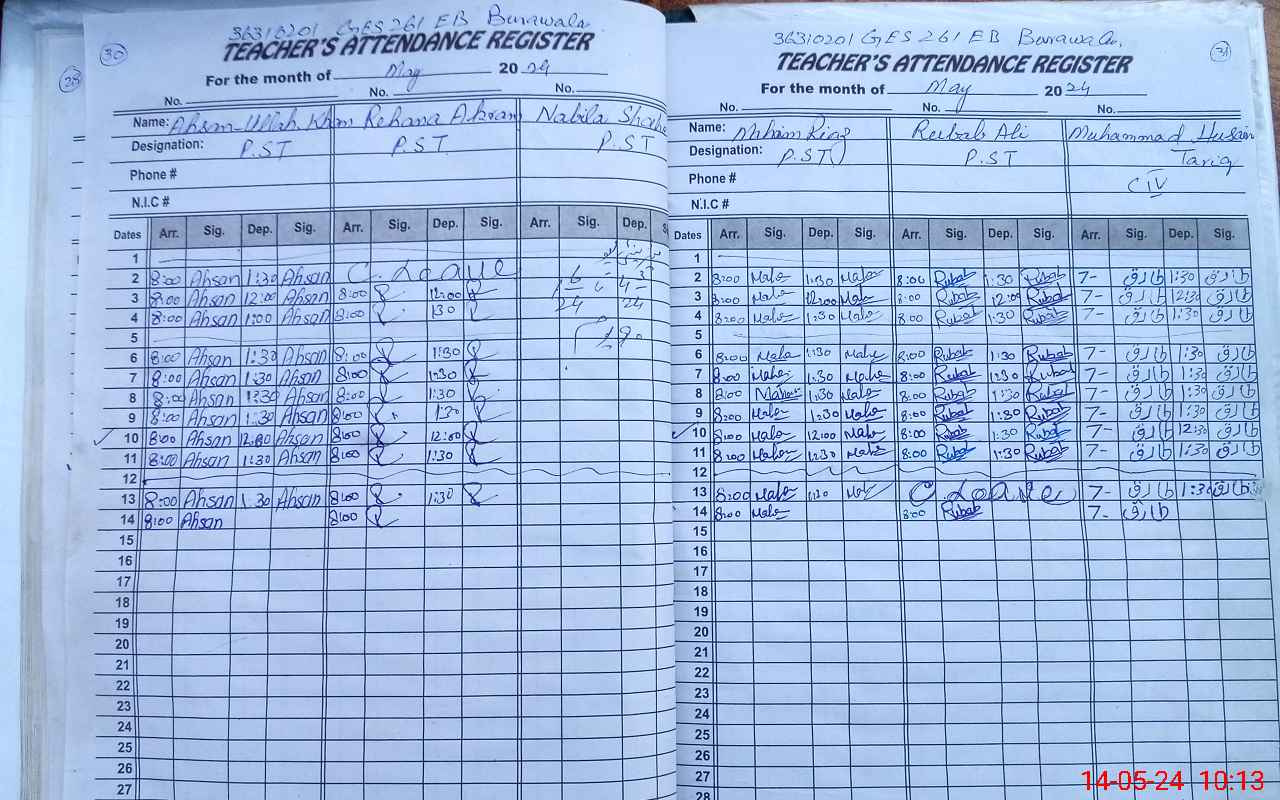 36310201 GES 261 EB Burawala
30
TEACHER'S ATTENDANCE REGISTER
28
For the month of May 2024
No. No. No.
Name: Ahsan-Ullah Khan Rehana Akram Nabila
Designation: P.ST P.ST P.ST
Phone #
N.I.C #
Dates Arr. Sig. Dep. Sig. Arr. Sig. Dep. Sig. Arr. Sig. Dep.
1
2 8:00 Ahsan 1:30 Ahsan C. Leave
3 8:00 Ahsan 12:00 Ahsan 8:00 R 12:00 R
4 8:00 Ahsan 1:00 Ahsan 8:00 R 1:30 R
5
6 8:00 Ahsan 1:30 Ahsan 8:00 R 1:30 R
7 8:00 Ahsan 1:30 Ahsan 8:00 R 1:30 R
8 8:00 Ahsan 1:30 Ahsan 8:00 R 1:30 R
9 8:00 Ahsan 1:30 Ahsan 8:00 R 1:30 R
10 8:00 Ahsan 12:00 Ahsan 8:00 R 12:00 R
11 8:00 Ahsan 1:30 Ahsan 8:00 R 1:30 R
12
13 8:00 Ahsan 1:30 Ahsan 8:00 R 1:30 R
14 8:00 Ahsan 8:00 R
15
16
17
18
19
20
21
22
23
24
25
26
27
36310201 GES 261 EB Burawala
31
TEACHER'S ATTENDANCE REGISTER
For the month of May 2024
No. No. No.
Name: Riaz Rubab Ali Muhammad Husain
Designation: P.ST P.ST Tariq
Phone # CIV
N.I.C #
Dates Arr. Sig. Dep. Sig. Arr. Sig. Dep. Sig. Arr. Sig. Dep. Sig.
1
2 8:00 Maho 1:30 Maho 8:00 Rubab 1:30 Rubab 7- طارق 1:30 طارق
3 8:00 Maho 12:00 Maho 8:00 Rubab 12:00 Rubab 7- طارق 12:30 طارق
4 8:00 Maho 1:30 Maho 8:00 Rubab 1:30 Rubab 7- طارق 1:30 طارق
5
6 8:00 Maho 1:30 Maho 8:00 Rubab 1:30 Rubab 7- طارق 1:30 طارق
7 8:00 Maho 1:30 Maho 8:00 Rubab 1:30 Rubab 7- طارق 1:30 طارق
8 8:00 Maho 1:30 Maho 8:00 Rubab 1:30 Rubab 7- طارق 1:30 طارق
9 8:00 Maho 1:30 Maho 8:00 Rubab 1:30 Rubab 7- طارق 1:30 طارق
10 8:00 Maho 12:00 Maho 8:00 Rubab 1:30 Rubab 7- طارق 12:30 طارق
11 8:00 Maho 1:30 Maho 8:00 Rubab 1:30 Rubab 7- طارق 1:30 طارق
12
13 8:00 Maho 1:30 Maho C. Leave 7- طارق 1:30 طارق
14 8:00 Maho 8:00 Rubab 7- طارق
15
16
17
18
19
20
21
22
23
24
25
26
27
28
14-05-24 10:13